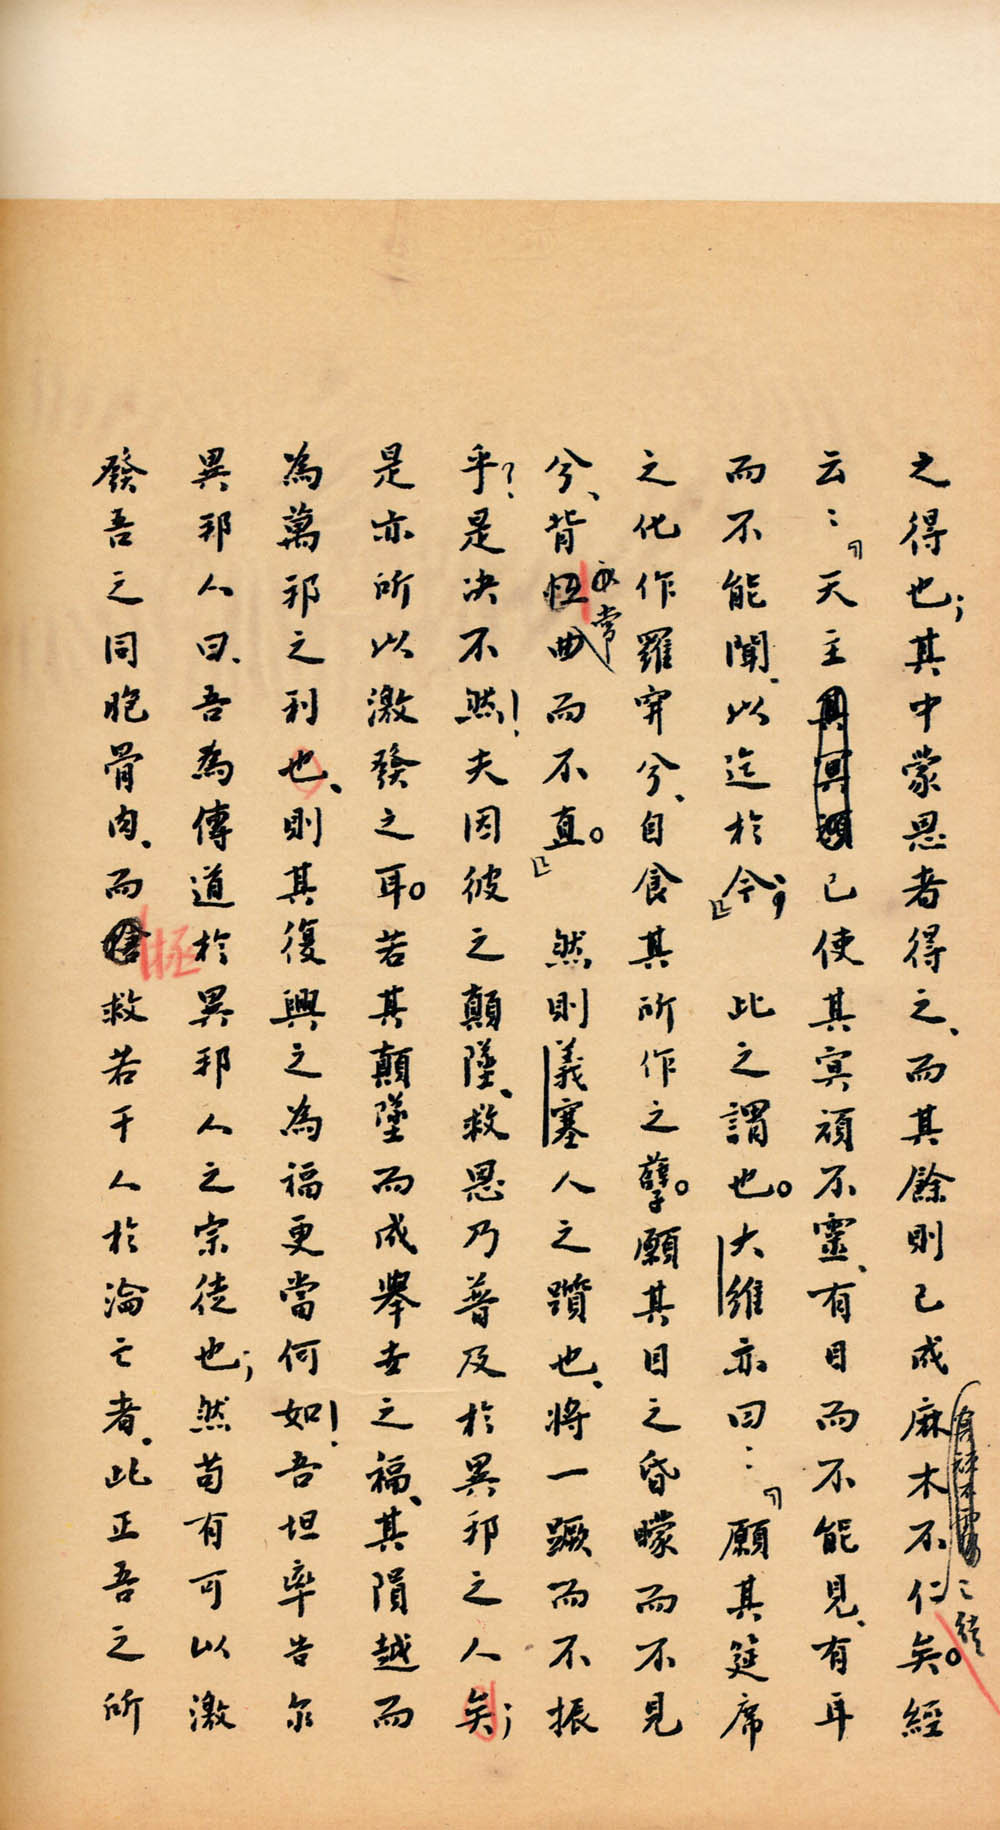 之得也；其中蒙恩者得之、而其餘則已成麻木不仁矣。經
云：「天主已使其冥頑不靈、有目而不能見、有耳
而不能聞、以迄於今；」此之謂也。大維亦曰：「願其筵席
之化作羅穽兮、自食其所作之孽。願其目之昏矇而不見
兮、背恆曲而不直。」然則義塞人之躓也、將一蹶而不振
乎？是決不然！夫因彼之顛墜、救恩乃普及於異邦之人矣；
是亦所以激發之耳。若其顛墜而成舉世之福、其隕越而
為萬邦之利也、則其復興之為福更當何如！吾坦率告爾
異邦人曰、吾為傳道於異邦人之宗徒也；然苟有可以激
發吾之同胞骨肉、而拯救若干人於淪亡者、此正吾之所